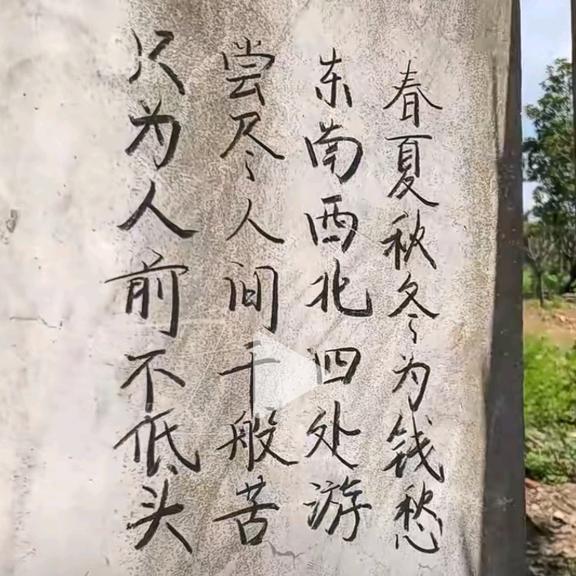 春夏秋冬为钱愁
东南西北四处游
尝尽人间千般苦
只为人前不低头